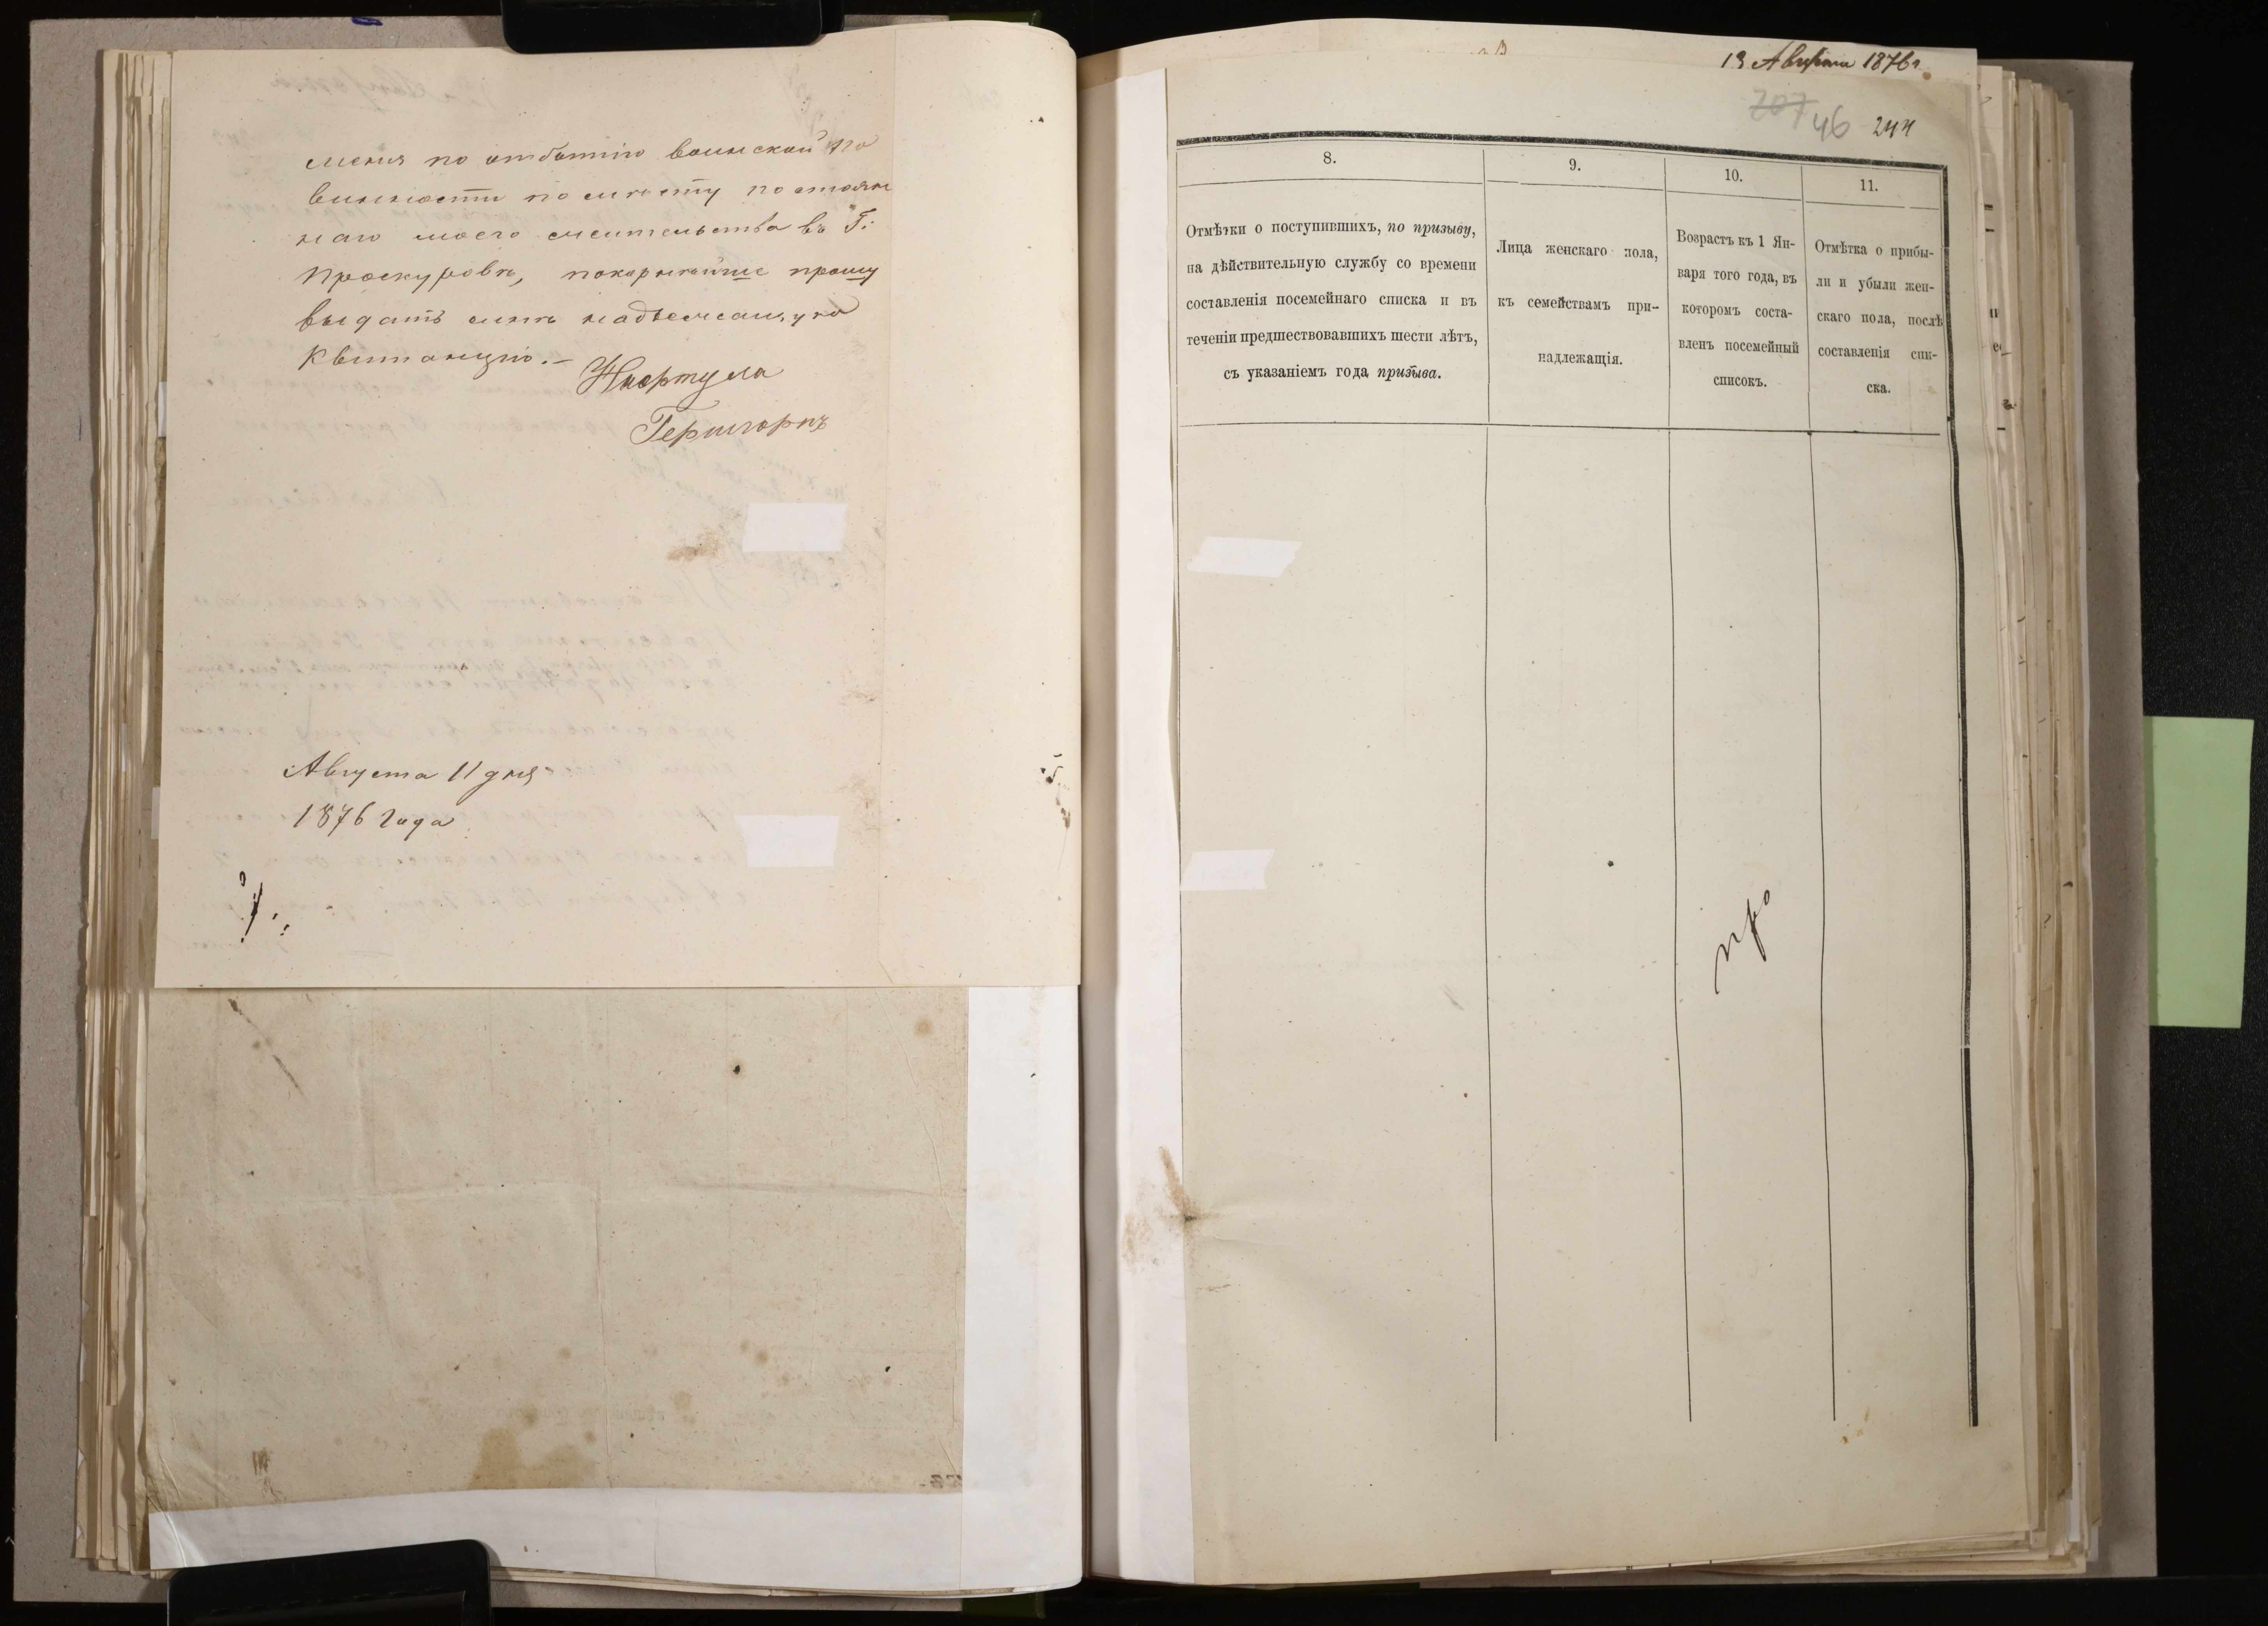 меня по отбытію воинской по
винности по мѣсту постоян
наго моего жительства въ Г:
Проскуровѣ, покорнѣйше прошу
выдать мнѣ надлежащую
квитанцію.–
Гершгорнъ
Августа 11 дня
1876 года
13 Августа 1876 г.
207 46 244
8.
Отмѣтки о поступившихъ, по призыву,
на дѣйствительную службу со времени
составленія посемейнаго списка и въ
теченіи предшествовавшихъ шести лѣтъ,
съ указаніемъ года призыва.
9.
Лица женскаго пола,
къ семействамъ при-
надлежащія.
10.
Возрастъ къ 1 Ян-
варя того года, въ
которомъ соста-
вленъ посемейный
списокъ.
11.
Отмѣтка о прибы-
ли и убыли жен-
скаго пола, послѣ
составленія спи-
ска.
про